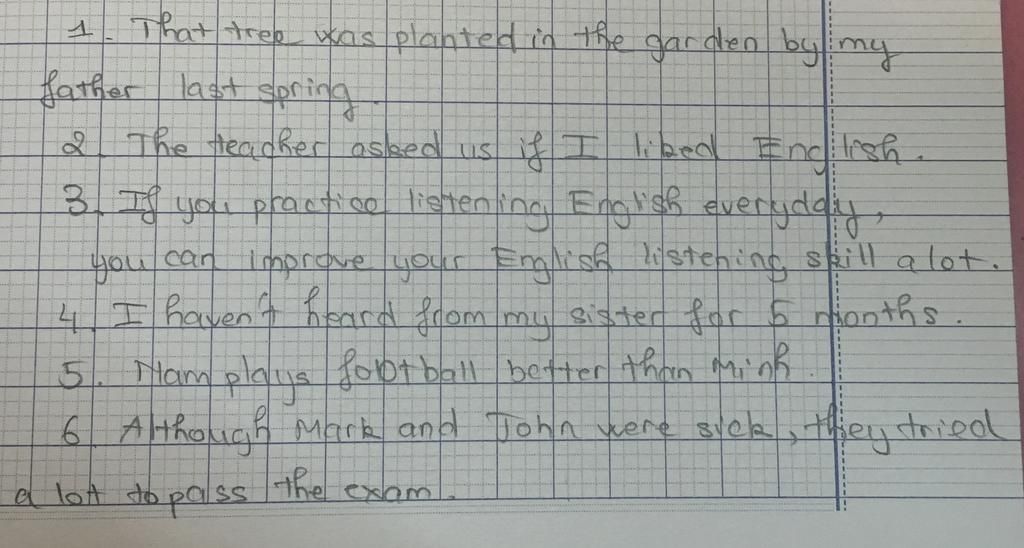 1. That tree was planted in the garden by my
father last spring.
2. The teacher asked us if I liked English.
3. If you practice listening English everyday,
you can improve your English listening skill a lot.
4. I haven't heard from my sister for 5 months.
5. Nam plays football better than Minh.
6. Although Mark and John were sick, they tried
a lot to pass the exam.